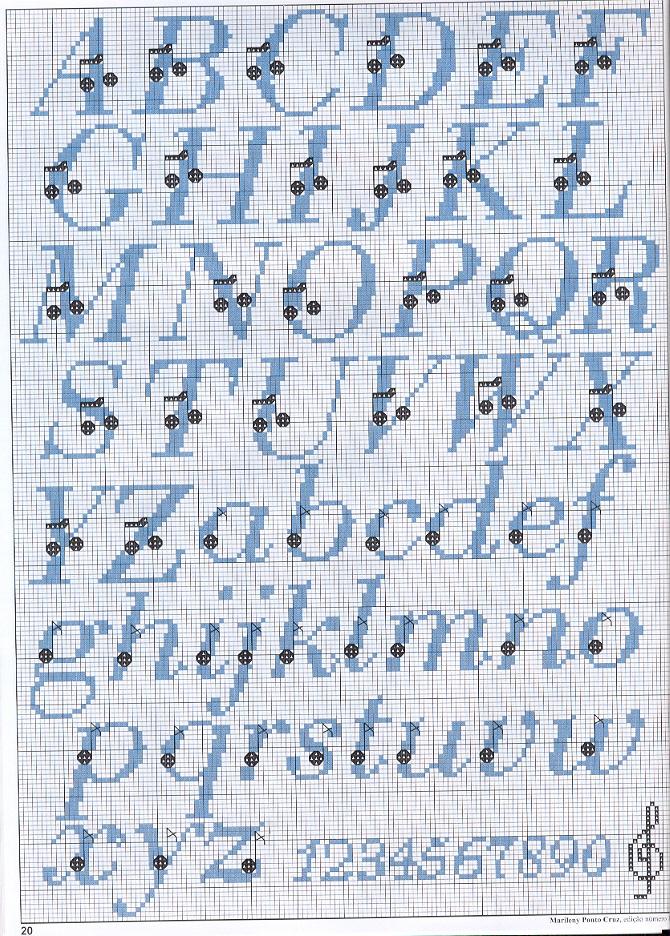 A B C D E F
G H I J K L
M N O P Q R
S T U V W X
Y Z a b c d e f
g h i j k l m n o
p q r s t u v w
x y z 1234567890
20
Marileny Ponto Cruz, edição número